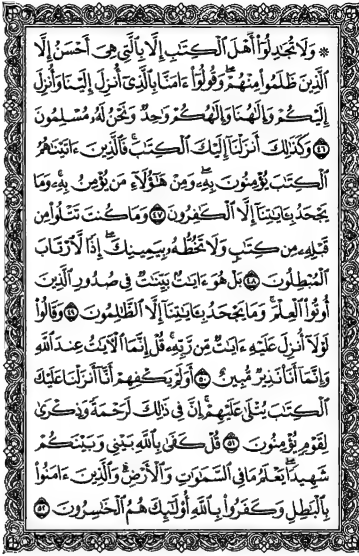 ۞ وَلَا تُجَٰدِلُوٓاْ أَهۡلَ ٱلۡكِتَٰبِ إِلَّا بِٱلَّتِي هِيَ أَحۡسَنُ إِلَّا
ٱلَّذِينَ ظَلَمُواْ مِنۡهُمۡۖ وَقُولُوٓاْ ءَامَنَّا بِٱلَّذِيٓ أُنزِلَ إِلَيۡنَا وَأُنزِلَ
إِلَيۡكُمۡ وَإِلَٰهُنَا وَإِلَٰهُكُمۡ وَٰحِدٞ وَنَحۡنُ لَهُۥ مُسۡلِمُونَ
٤٦ وَكَذَٰلِكَ أَنزَلۡنَآ إِلَيۡكَ ٱلۡكِتَٰبَۚ فَٱلَّذِينَ ءَاتَيۡنَٰهُمُ
ٱلۡكِتَٰبَ يُؤۡمِنُونَ بِهِۦۖ وَمِنۡ هَٰٓؤُلَآءِ مَن يُؤۡمِنُ بِهِۦۚ وَمَا
يَجۡحَدُ بِـَٔايَٰتِنَآ إِلَّا ٱلۡكَٰفِرُونَ ٤٧ وَمَا كُنتَ تَتۡلُواْ مِن
قَبۡلِهِۦ مِن كِتَٰبٖ وَلَا تَخُطُّهُۥ بِيَمِينِكَۖ إِذٗا لَّٱرۡتَابَ
ٱلۡمُبۡطِلُونَ ٤٨ بَلۡ هُوَ ءَايَٰتُۢ بَيِّنَٰتٞ فِي صُدُورِ ٱلَّذِينَ
أُوتُواْ ٱلۡعِلۡمَۚ وَمَا يَجۡحَدُ بِـَٔايَٰتِنَآ إِلَّا ٱلظَّٰلِمُونَ ٤٩ وَقَالُواْ
لَوۡلَآ أُنزِلَ عَلَيۡهِ ءَايَٰتٞ مِّن رَّبِّهِۦۚ قُلۡ إِنَّمَا ٱلۡأٓيَٰتُ عِندَ ٱللَّهِ
وَإِنَّمَآ أَنَا۠ نَذِيرٞ مُّبِينٌ ٥٠ أَوَلَمۡ يَكۡفِهِمۡ أَنَّآ أَنزَلۡنَا عَلَيۡكَ
ٱلۡكِتَٰبَ يُتۡلَىٰ عَلَيۡهِمۡۚ إِنَّ فِي ذَٰلِكَ لَرَحۡمَةٗ وَذِكۡرَىٰ
لِقَوۡمٖ يُؤۡمِنُونَ ٥١ قُلۡ كَفَىٰ بِٱللَّهِ بَيۡنِي وَبَيۡنَكُمۡ
شَهِيدٗاۖ يَعۡلَمُ مَا فِي ٱلسَّمَٰوَٰتِ وَٱلۡأَرۡضِۗ وَٱلَّذِينَ ءَامَنُواْ
بِٱلۡبَٰطِلِ وَكَفَرُواْ بِٱللَّهِ أُوْلَٰٓئِكَ هُمُ ٱلۡخَٰسِرُونَ ٥٢